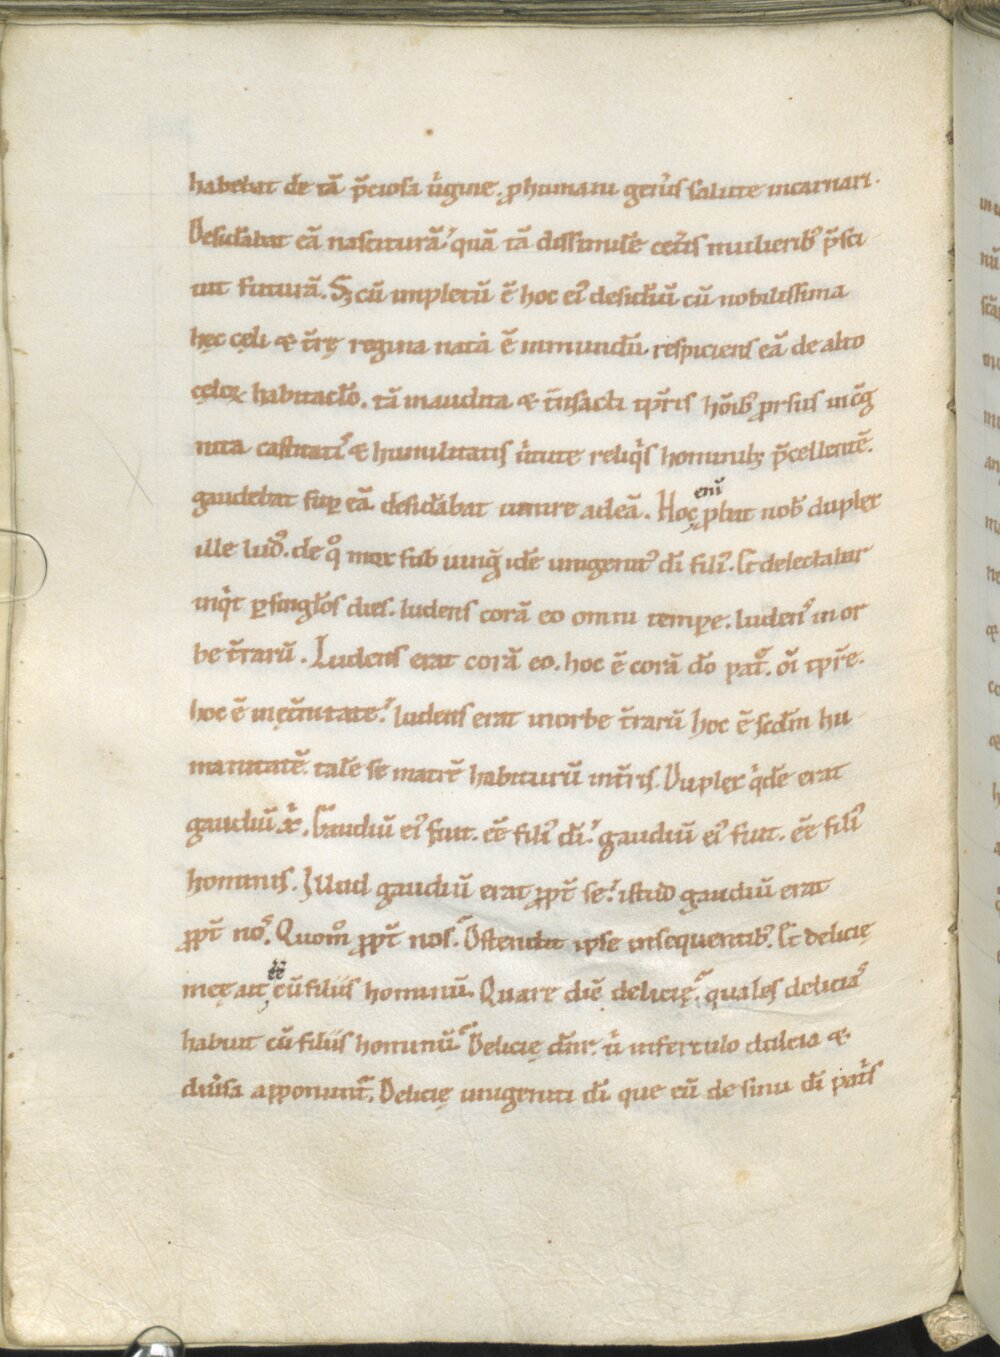 habebat de tā p̄ciosa ūgine. ꝓ humani gen̄is salute incarnari.
Desid̄abat eā nasciturā. quā tā dissimilē cet̄is mulierib᷒ p̄sci
uit futurā. Sꝫ cū impletū ē hoc ei᷒ desid̄iū cū nobilissima
hęc cęli & t̄rę regina nata ē in mundū respiciens eā de alto
cęloꝝ habitacl̄o. tā inaudita & t̄nsacti tp̄ris hōib᷒ prorsus incōg
nita castitatis & humilitatis ūtute reliq̄s hominibꝫ p̄cellentē.
gaudebat sup eā desid̄abat uenire ad eā. Hoc eni p̄bat nob̄ duplex
ille lud᷒. de q̊ mox subiungit idē unigenit᷒ dī fili᷒. Et delectabar
inq̄t ꝑ singl̄os dies. ludens corā eo omni tempore. ludens in or
be t̄rarū. Ludens erat corā eo. hoc ē corā dō pat̄. oī tp̄re.
hoc ē in ęt̄nitate. ludens erat in orbe t̄rarū hoc ē scdm̄ hu
manitatē. talē se matrē habiturū in t̄ris. Duplex q̄dē erat
gaudiū x̄. Gaudiū ei᷒ fuit. eē fili᷒ dī. gaudiū ei᷒ fuit. eē fili᷒
hominis. Illud gaudiū erat ꝓpt̄ se. istud gaudiū erat
ꝓpt̄ nos. Quom̊ ꝓpt̄ nos. Ostendit ipse in sequentib᷒. Et delicię
meę ait eē cū filiis hominū. Quare dic delicię. quales delicias
habuit cū filiis hominū. Delicię dn̄r. ū in ferculo dulcia &
diūsa apponunt̄. Delicię unigeniti dī que eū de sinu dī pat̄s